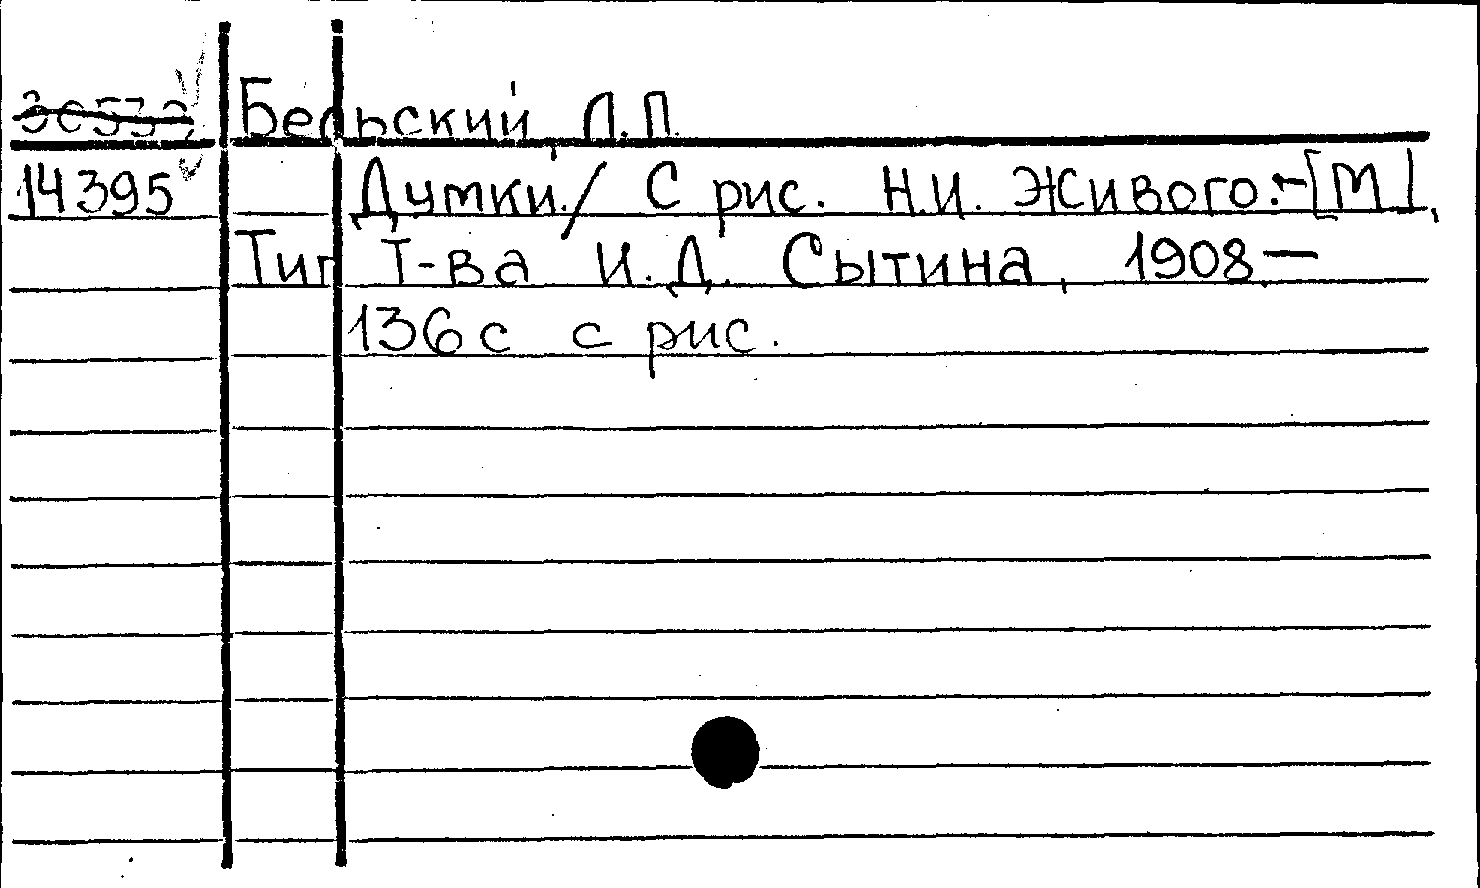 Бельский, Л.П.
14395 Думки / С рис. Н.И. Живого. - [М],
Тип Т-ва И.Д. Сытина, 1908. —
136 с с рис.